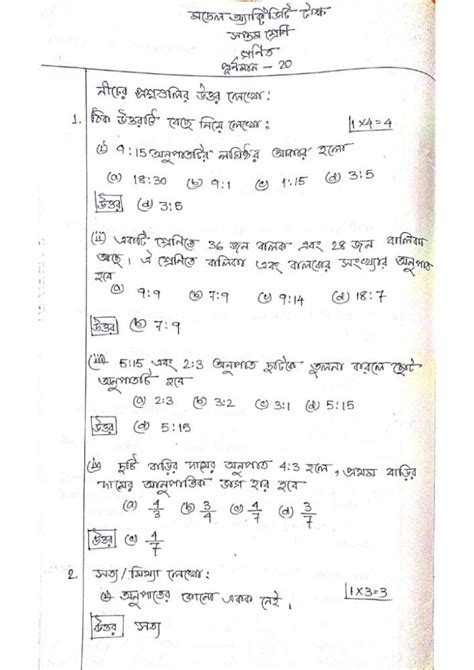 মডেল অ্যাক্টিভিটি টাস্ক
সপ্তম শ্রেণি
গণিত
পূর্ণমান - 20
নীচের প্রশ্নগুলির উত্তর লেখো:
1. ঠিক উত্তরটি বেছে নিয়ে লেখো: 1×4=4
(i) 9:15 অনুপাতটির লঘিষ্ঠ আকার হলো
(a) 18:30 (b) 9:1 (c) 1:15 (d) 3:5
উত্তর (d) 3:5
(ii) একটি শ্রেণিতে 36 জন বালক এবং 28 জন বালিকা
আছে। ঐ শ্রেণিতে বালিকা এবং বালকের সংখ্যার অনুপাত
হবে
(a) 9:9 (b) 7:9 (c) 9:14 (d) 18:7
উত্তর (b) 7:9
(iii) 5:15 এবং 2:3 অনুপাত দুটিকে তুলনা করলে ছোট
অনুপাতটি হবে
(a) 2:3 (b) 3:2 (c) 3:1 (d) 5:15
উত্তর (d) 5:15
(iv) দুটি বাড়ির দামের অনুপাত 4:3 হলে, প্রথম বাড়ির
দামের আনুপাতিক ভাগ হার হবে
(a) 1/3 (b) 3/4 (c) 4/7 (d) 3/7
উত্তর (c) 4/7
2. সত্য/মিথ্যা লেখো: 1×3=3
(i) অনুপাতের কোনো একক নেই।
উত্তর সত্য